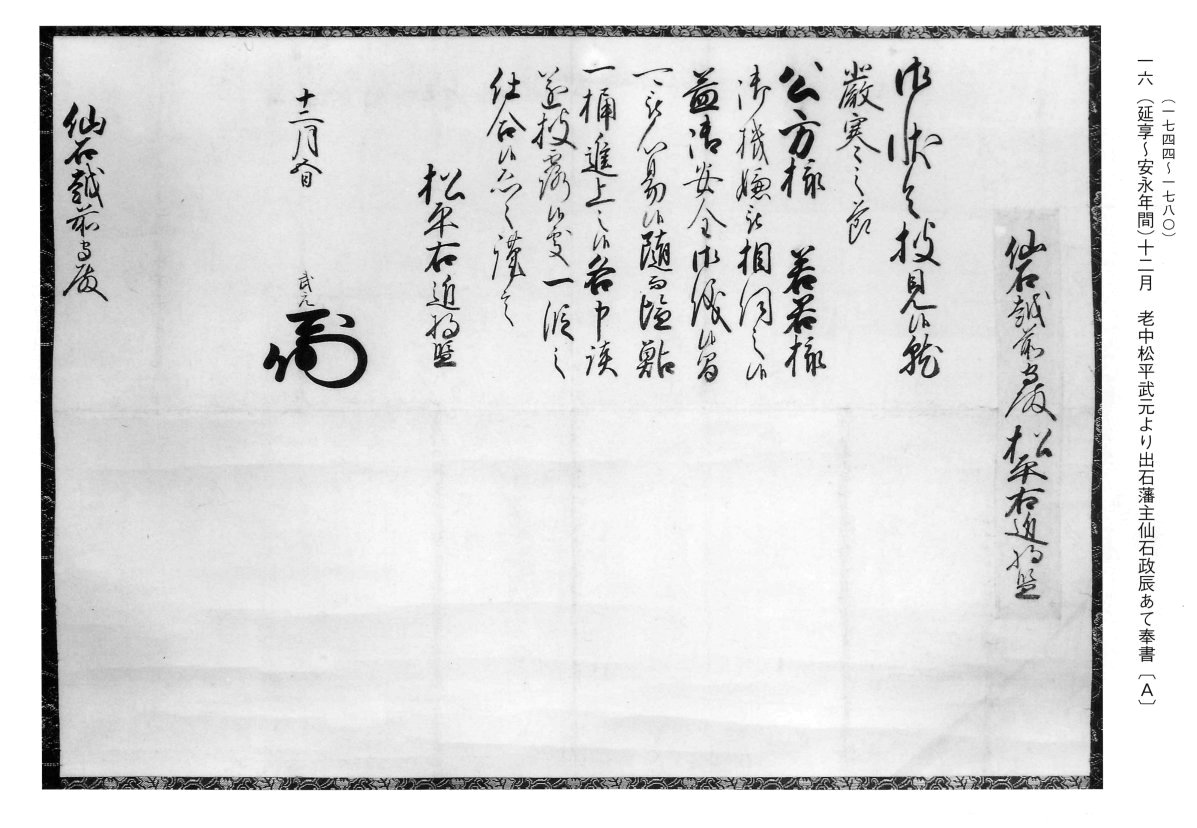 (一七四四〜一七八〇)
一六 (延享〜安永年間)十二月 老中松平武元より出石藩主仙石政辰あて奉書〔A〕
仙石越前守殿 松平右近将監
御状令披見候就
厳寒之節
公方様 若君様
御機嫌被相伺之候
益御安全御儀候間
可被心易候随而塩鮎
一桶進上之候各申談
遂披露候処一段之
仕合候恐々謹言
松平右近将監
十二月
武元
仙石越前守殿